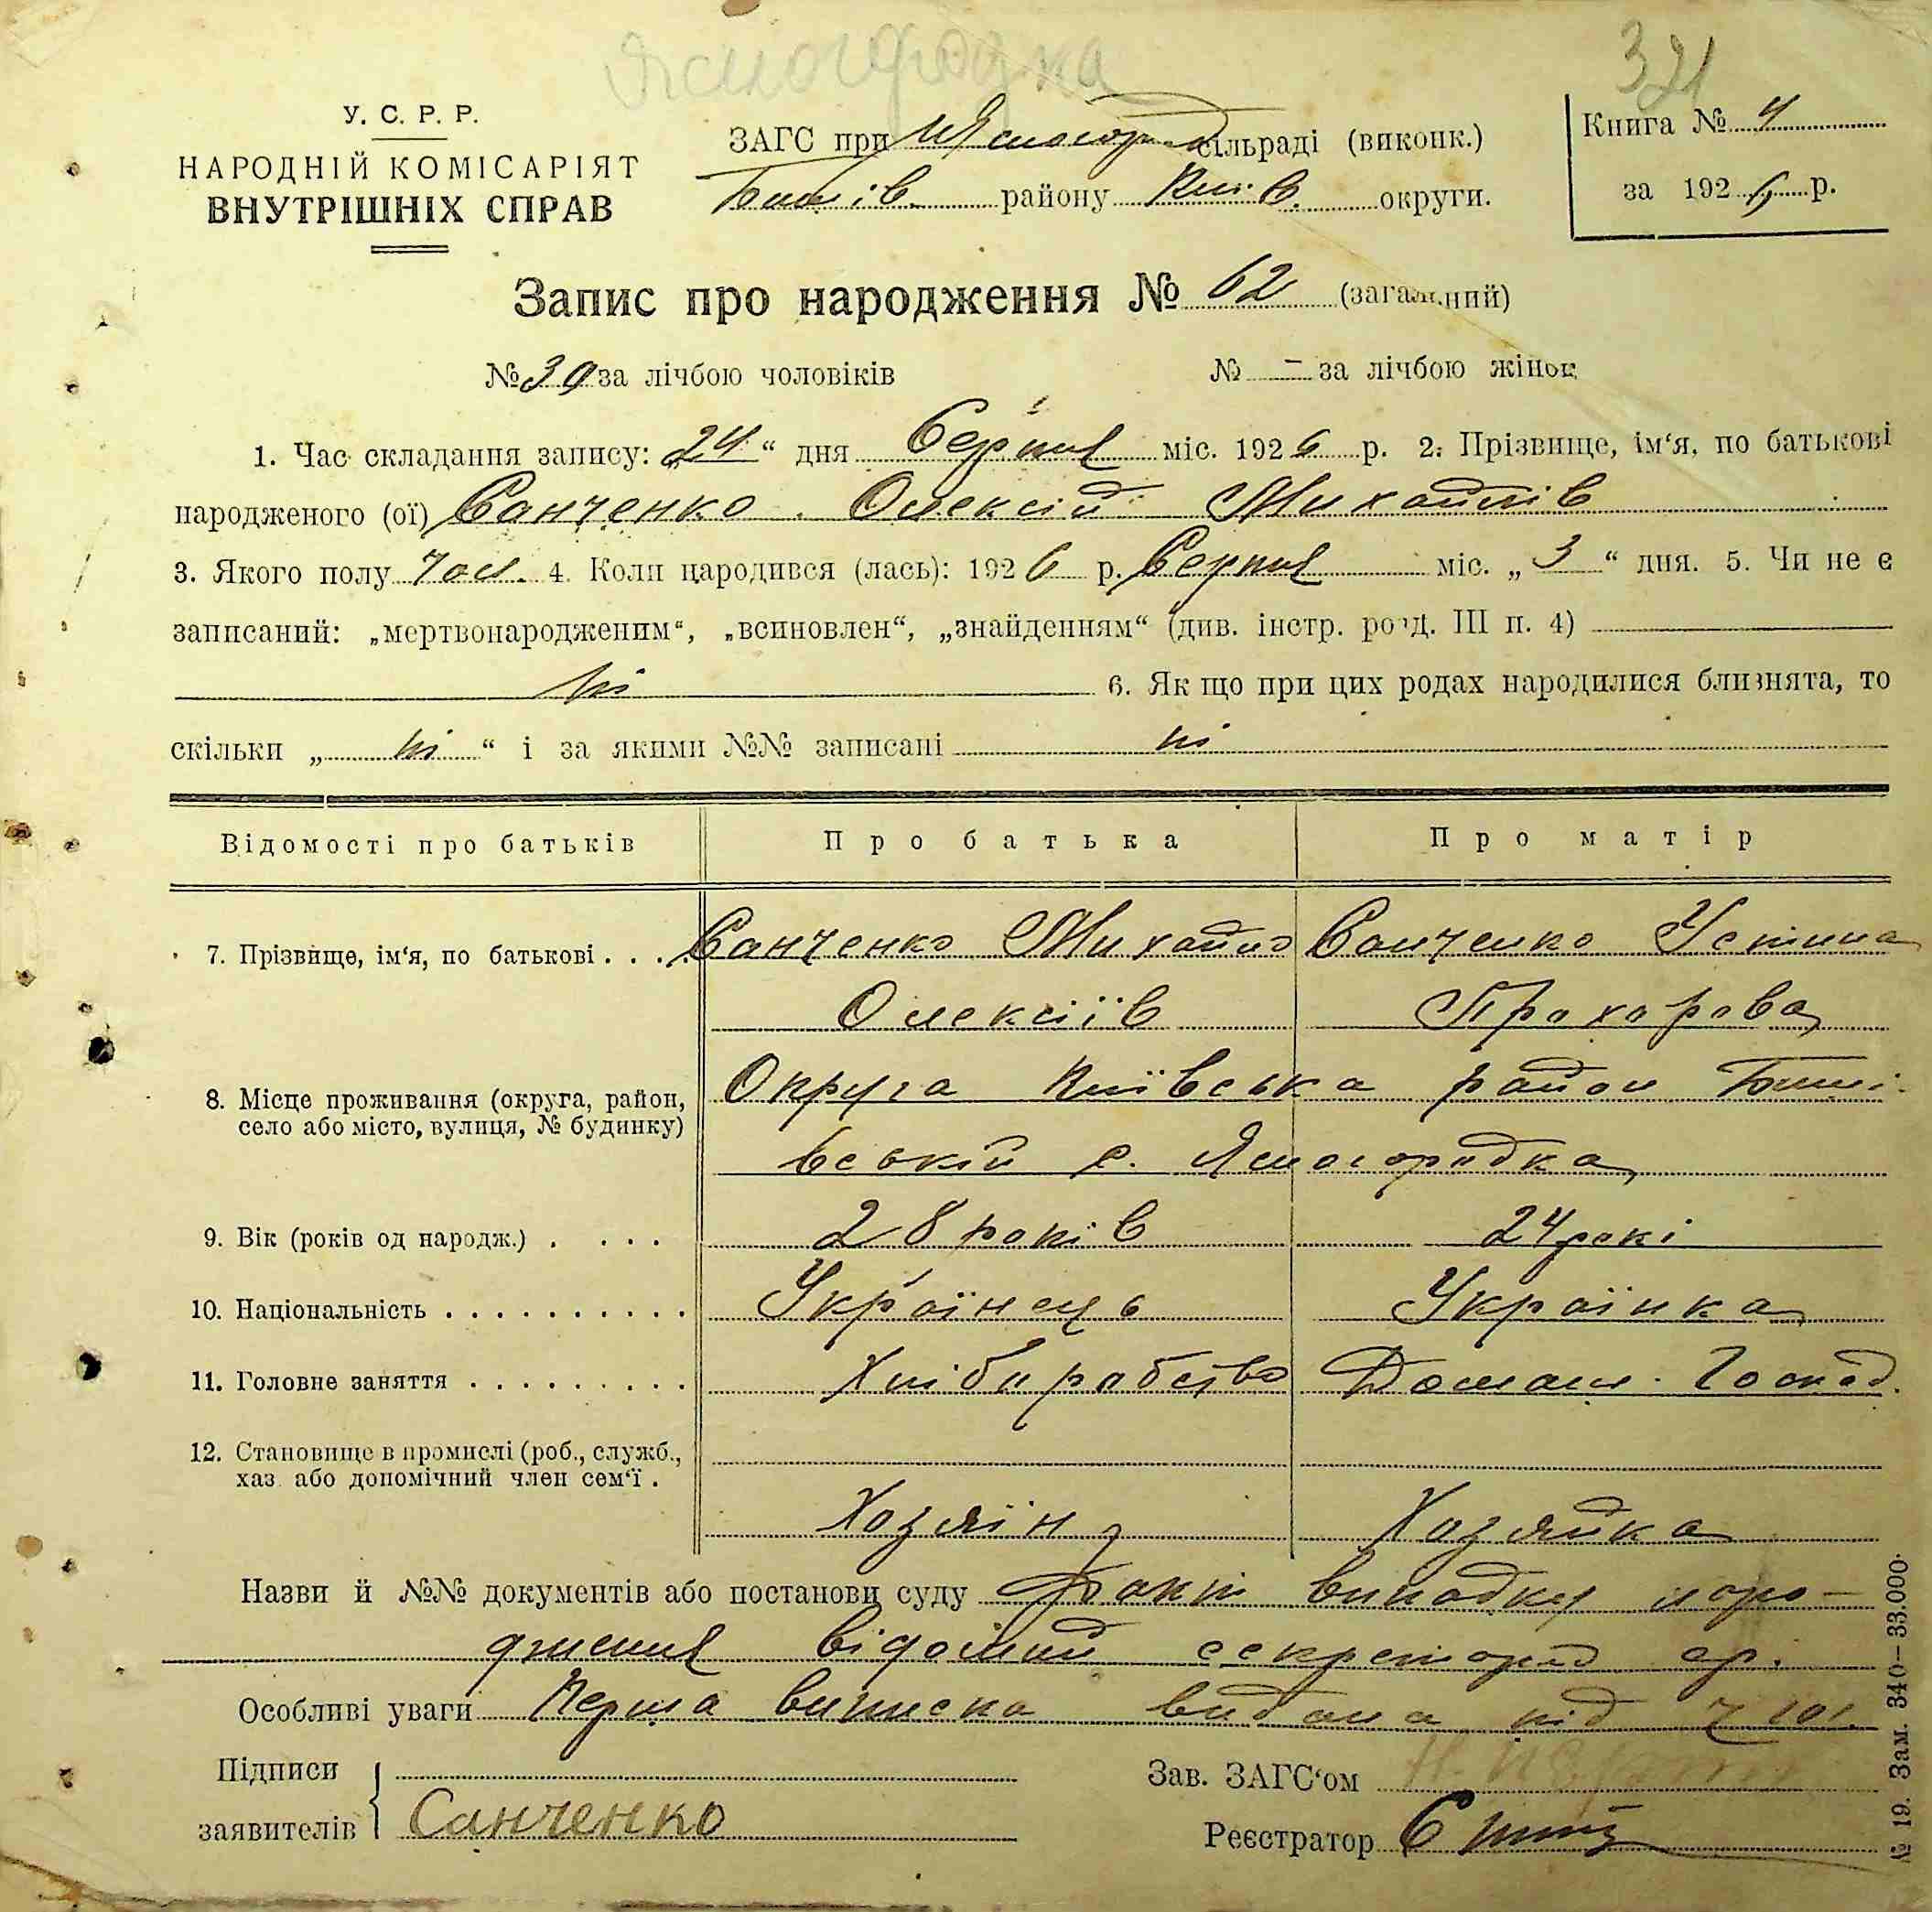 Ясногородка
321
У. С. Р. Р.
НАРОДНІЙ КОМІСАРІЯТ
ВНУТРІШНІХ СПРАВ
ЗАГС при Ясногор. сільраді (виконк.)
Бишів. району Київ. округи.
Книга № 4
за 1926 р.
Запис про народження № 62 (загальний)
№ 39 за лічбою чоловіків № - за лічбою жінок
1. Час складання запису: „24“ дня Серпня міс. 1926 р. 2. Прізвище, ім‘я, по батькові
народженого (ої) Санченко Олексій Михайлів
3. Якого полу чол. 4. Коли народився (лась): 1926 р. Серпня міс. „3“ дня. 5. Чи не є
записаний: „мертвонародженим“, „всиновлен“, „знайденням“ (див. інстр. розд. III п. 4)
ні 6. Як що при цих родах народилися близнята, то
скільки „ні“ і за якими №№ записані ні
Відомості про батьків Про батька Про матір
7. Прізвище, ім‘я, по батькові . . . . Санченко Михайло Санченко Устина
Олексіїв Прохорова
8. Місце проживання (округа, район,
село або місто, вулиця, № будинку)
Округа Київська район Биші-
вський с. Ясногородка
9. Вік (років од народж.) . . . . 28 років 24 рокі
10. Національність . . . . . . . . . . Українець Українка
11. Головне заняття . . . . . . . . . Хліборобство Домашн. Господ.
12. Становище в промислі (роб., служб.,
хаз. або допомічний член сем‘ї .
Хозяїн Хозяйка
Назви й №№ документів або постанови суду Факт випадку наро-
дження відомий секретарю с.р.
Особливі уваги Перша виписка видана під ч 101.
Підписи
заявителів Санченко
Зав. ЗАГС‘ом
Реєстратор
№ 19. Зам. 340—33.000.